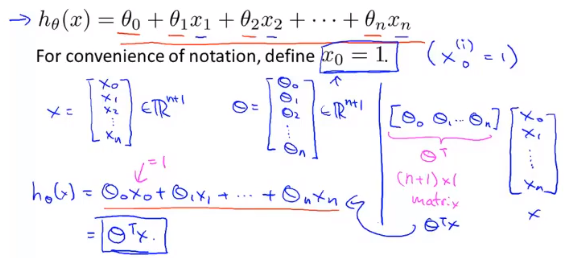 → hθ(x) = θ₀ + θ₁x₁ + θ₂x₂ + ⋯ + θₙxₙ
For convenience of notation, define x₀ = 1. (x₀⁽ⁱ⁾ = 1)
x = [x₀ x₁ x₂ ⋮ xₙ] ∈ ℝⁿ⁺¹
θ = [θ₀ θ₁ θ₂ ⋮ θₙ] ∈ ℝⁿ⁺¹
[θ₀ θ₁ ⋯ θₙ] [x₀ x₁ ⋮ xₙ]
θᵀ
(n+1) × 1
matrix
x
θᵀx
= 1
hθ(x) = θ₀x₀ + θ₁x₁ + ⋯ + θₙxₙ
= θᵀx.